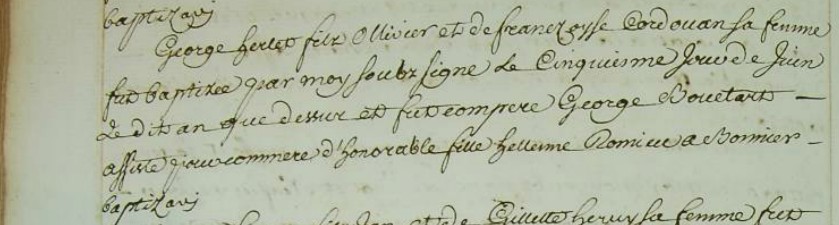 baptizavj
George herlet filz Ollivier et de franczoysse Cordouan sa femme
fut baptizee par moy soubz signe le Cinquiesme Jour de Juin
Le dit an que dessur et fut compere George Bouetart
assiste pour commere d'honorable fille hellenne a Bonnier
baptizavj
et de Gillette heruy sa femme fut